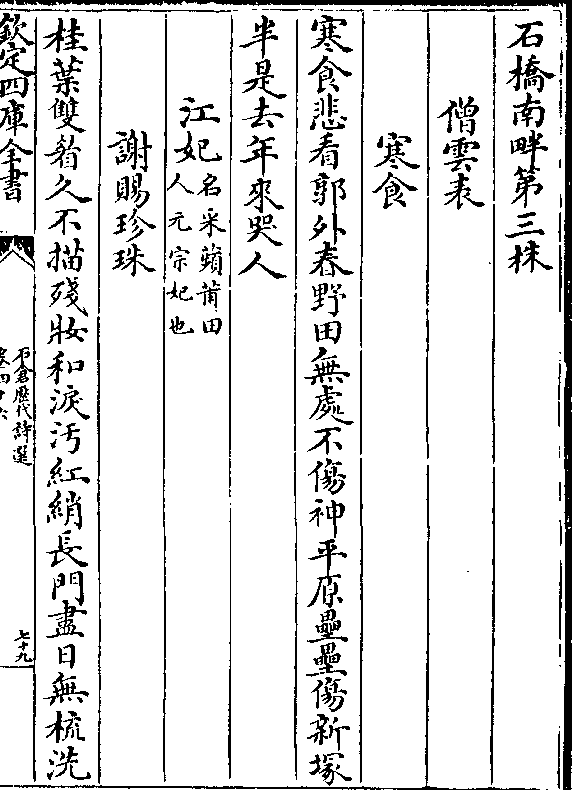 石橋南畔第三株
僧雲表
寒食
寒食悲看郭外春野田無處不傷神平原壘壘傷新塚
半是去年來哭人
江妃
名采蘋莆田
人元宗妃也
謝賜珍珠
桂葉雙睂久不描殘妝和淚汚紅綃長門盡日無梳洗
欽定四庫全書
石倉歷代詩選
七十九